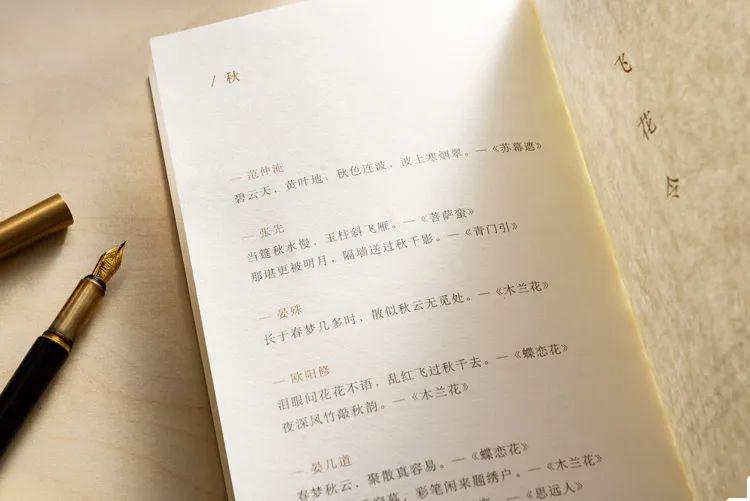 / 秋
— 范仲淹
碧云天，黄叶地，秋色连波，波上寒烟翠。—《苏幕遮》
— 张先
当筵秋水慢，玉柱斜飞雁。—《菩萨蛮》
那堪更被明月，隔墙送过秋千影。—《青门引》
— 晏殊
长于春梦几多时，散似秋云无觅处。—《木兰花》
— 欧阳修
泪眼问花花不语，乱红飞过秋千去。—《蝶恋花》
夜深风竹敲秋韵。—《木兰花》
— 晏几道
春梦秋云，聚散真容易。—《蝶恋花》
彩笔闲来题绣户。—《木兰花》
《思远人》
飞花令